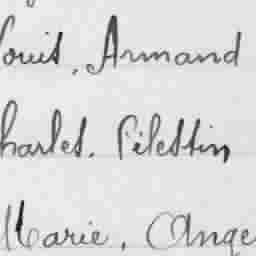 Louis, Armand
Charles, Célestin
Marie, Ange